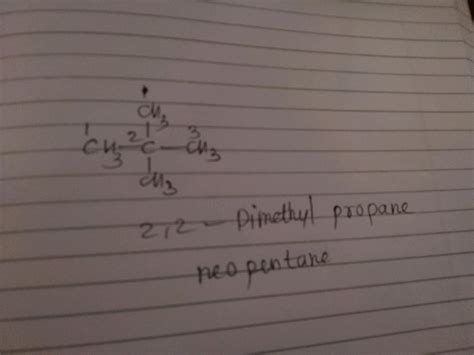 CH3
1 2 3
CH3-C-CH3
CH3
2,2-Dimethyl propane
neopentane